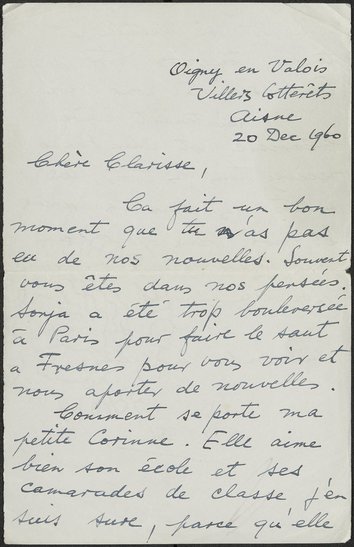 Oigny en Valois
Villers Cotterêts
Aisne
20 Dec 1960
Chère Clarisse,
Ca fait un bon
moment que tu n'as pas
eu de nos nouvelles. Souvent
vous êtes dans nos pensées.
Sonja a été trop bouleversée
à Paris pour faire le saut
a Fresnes pour vous voir et
nous aporter de nouvelles.
Comment se porte ma
petite Corinne. Elle aime
bien son école et ses
camarades de classe j'en
suis sure, parce qu'elle